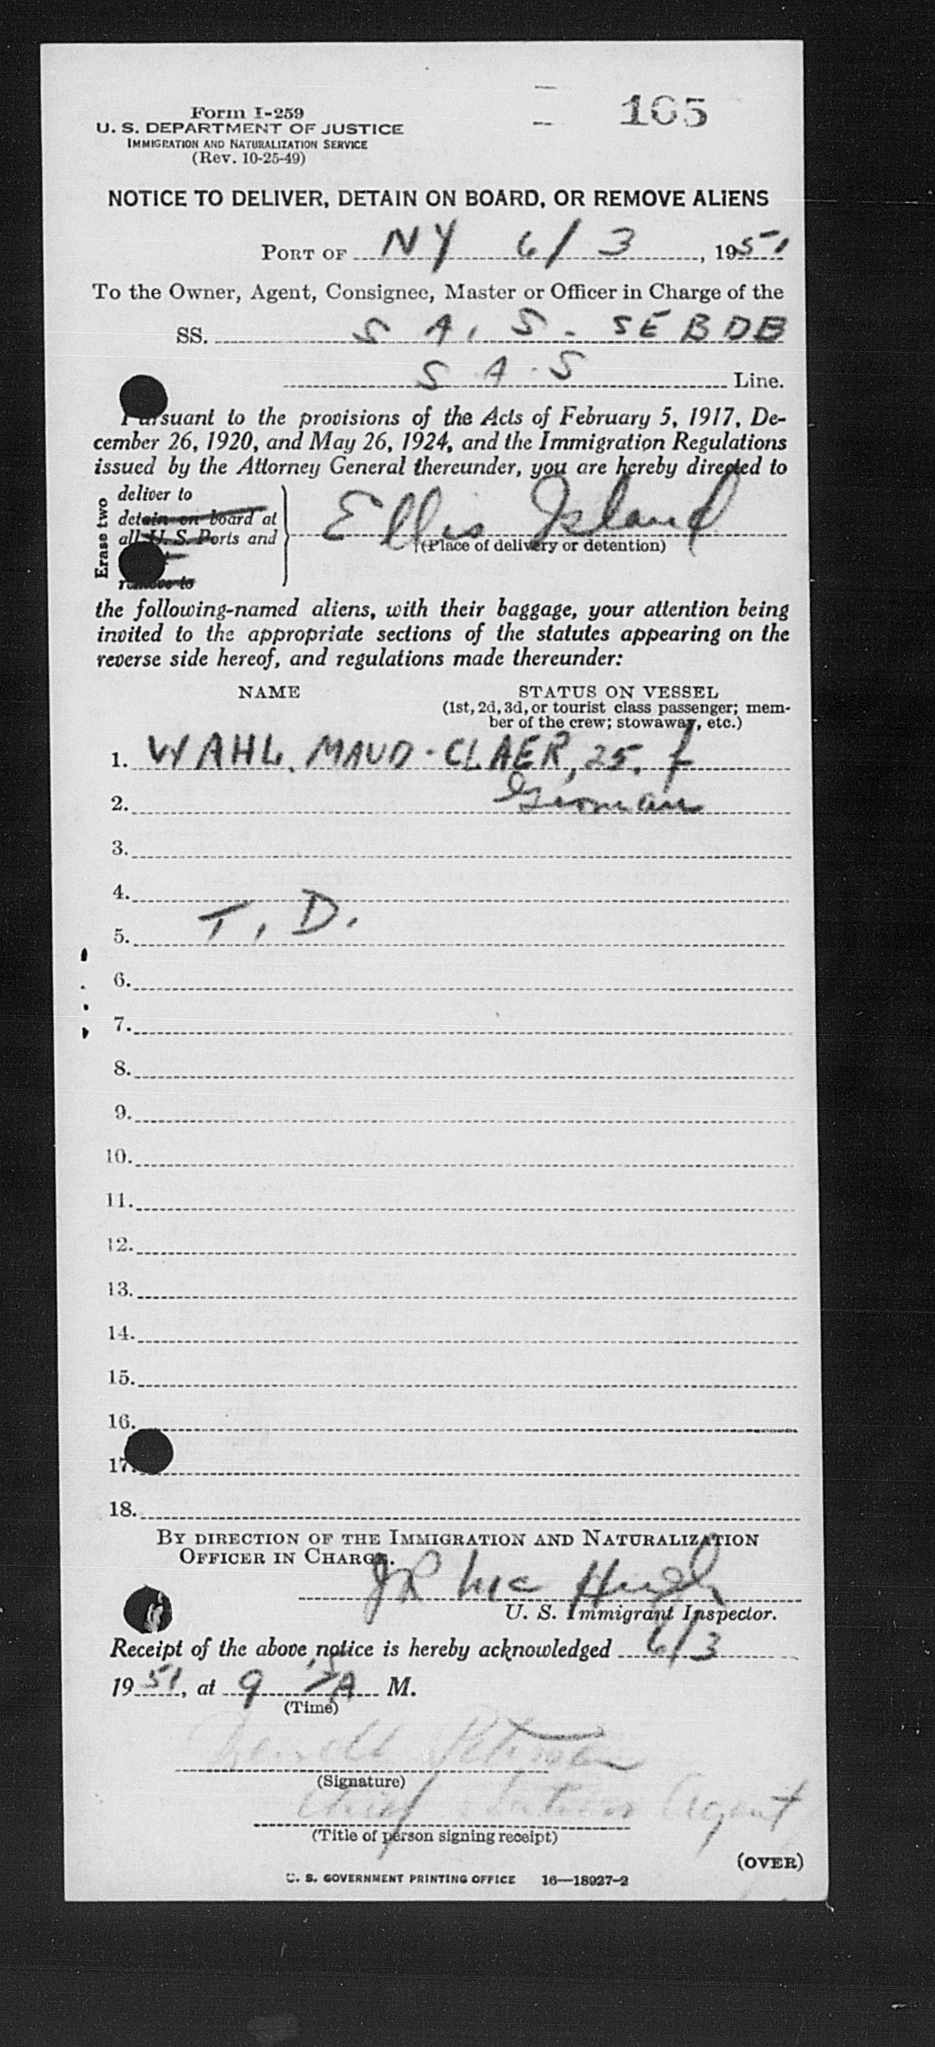 105
Form I-259
U. S. DEPARTMENT OF JUSTICE
IMMIGRATION AND NATURALIZATION SERVICE
(Rev. 10-25-49)
NOTICE TO DELIVER, DETAIN ON BOARD, OR REMOVE ALIENS
PORT OF NY 6/3, 1951
To the Owner, Agent, Consignee, Master or Officer in Charge of the
SS. S A. S - SE BDB
S A. S Line.
Pursuant to the provisions of the Acts of February 5, 1917, De-
cember 26, 1920, and May 26, 1924, and the Immigration Regulations
issued by the Attorney General thereunder, you are hereby directed to
Erase two
deliver to
detain on board at
all U. S. Ports and
remove to
Ellis Island
(Place of delivery or detention)
the following-named aliens, with their baggage, your attention being
invited to the appropriate sections of the statutes appearing on the
reverse side hereof, and regulations made thereunder:
NAME STATUS ON VESSEL
(1st, 2d, 3d, or tourist class passenger; mem-
ber of the crew; stowaway, etc.)
1. WAHL, MAUD-CLAER, 25. f
2. German
3.
4.
5. T. D.
6.
7.
8.
9.
10.
11.
12.
13.
14.
15.
16.
17.
18.
BY DIRECTION OF THE IMMIGRATION AND NATURALIZATION
OFFICER IN CHARGE.
JR McHugh
U. S. Immigrant Inspector.
Receipt of the above notice is hereby acknowledged 6/3
1951, at 9 A M.
(Time)
Petersen
(Signature)
Chief Station Agent
(Title of person signing receipt)
(OVER)
U. S. GOVERNMENT PRINTING OFFICE 16—18927-2